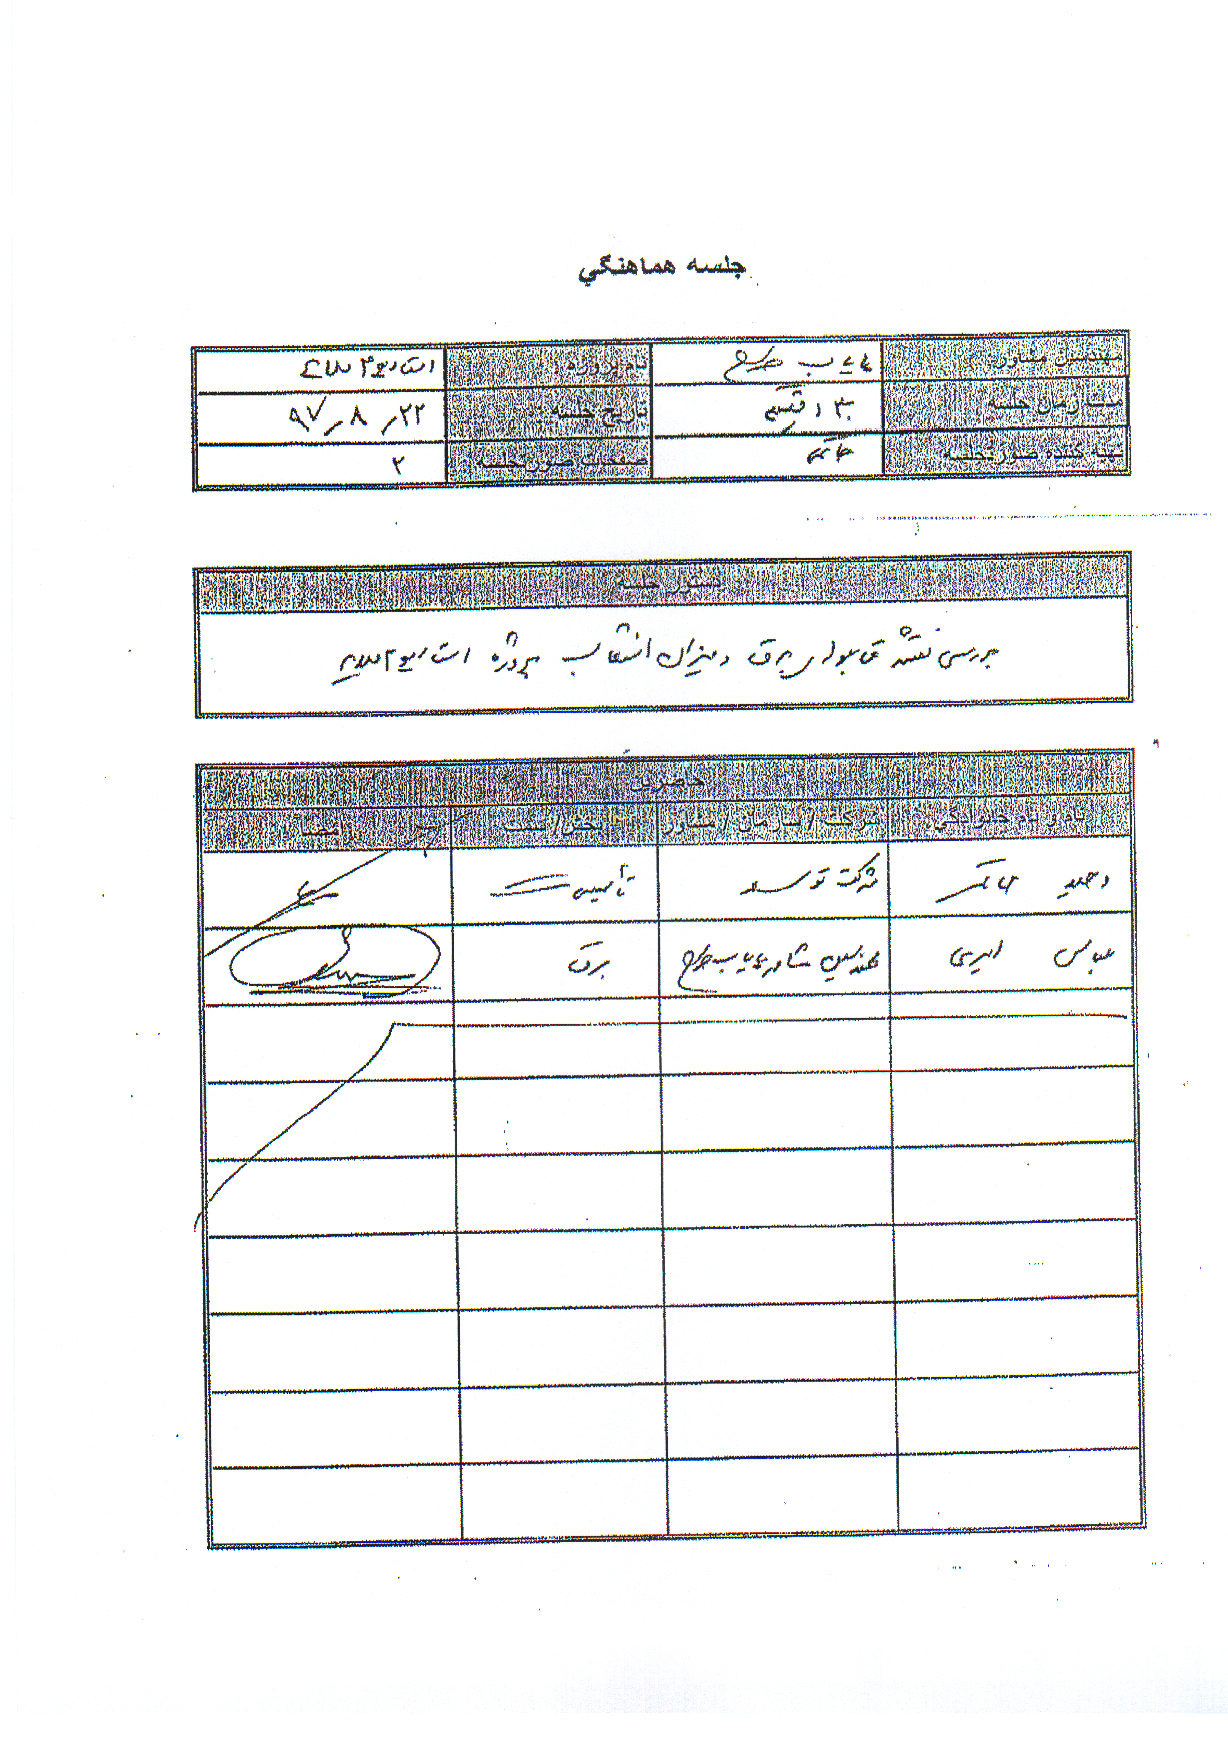 جلسه هماهنگي
مهندسين مشاور: طرح
نام پروژه: استادیوم ملایر
مدت زمان جلسه: ۳۰ دقیقه
تاريخ جلسه: ۹۷/۸/۲۲
تهيه كننده صورتجلسه:
صفحات صورتجلسه: ۲
دستور جلسه
بررسی نقشه برق و میزان انشعاب پروژه استادیوم ملایر
حاضرين
نام و نام خانوادگي شركت / سازمان / مشاور بخش / سمت امضا
وحید شرکت توسعه تأسیسات
عباس امیری مهندسین مشاور طرح برق